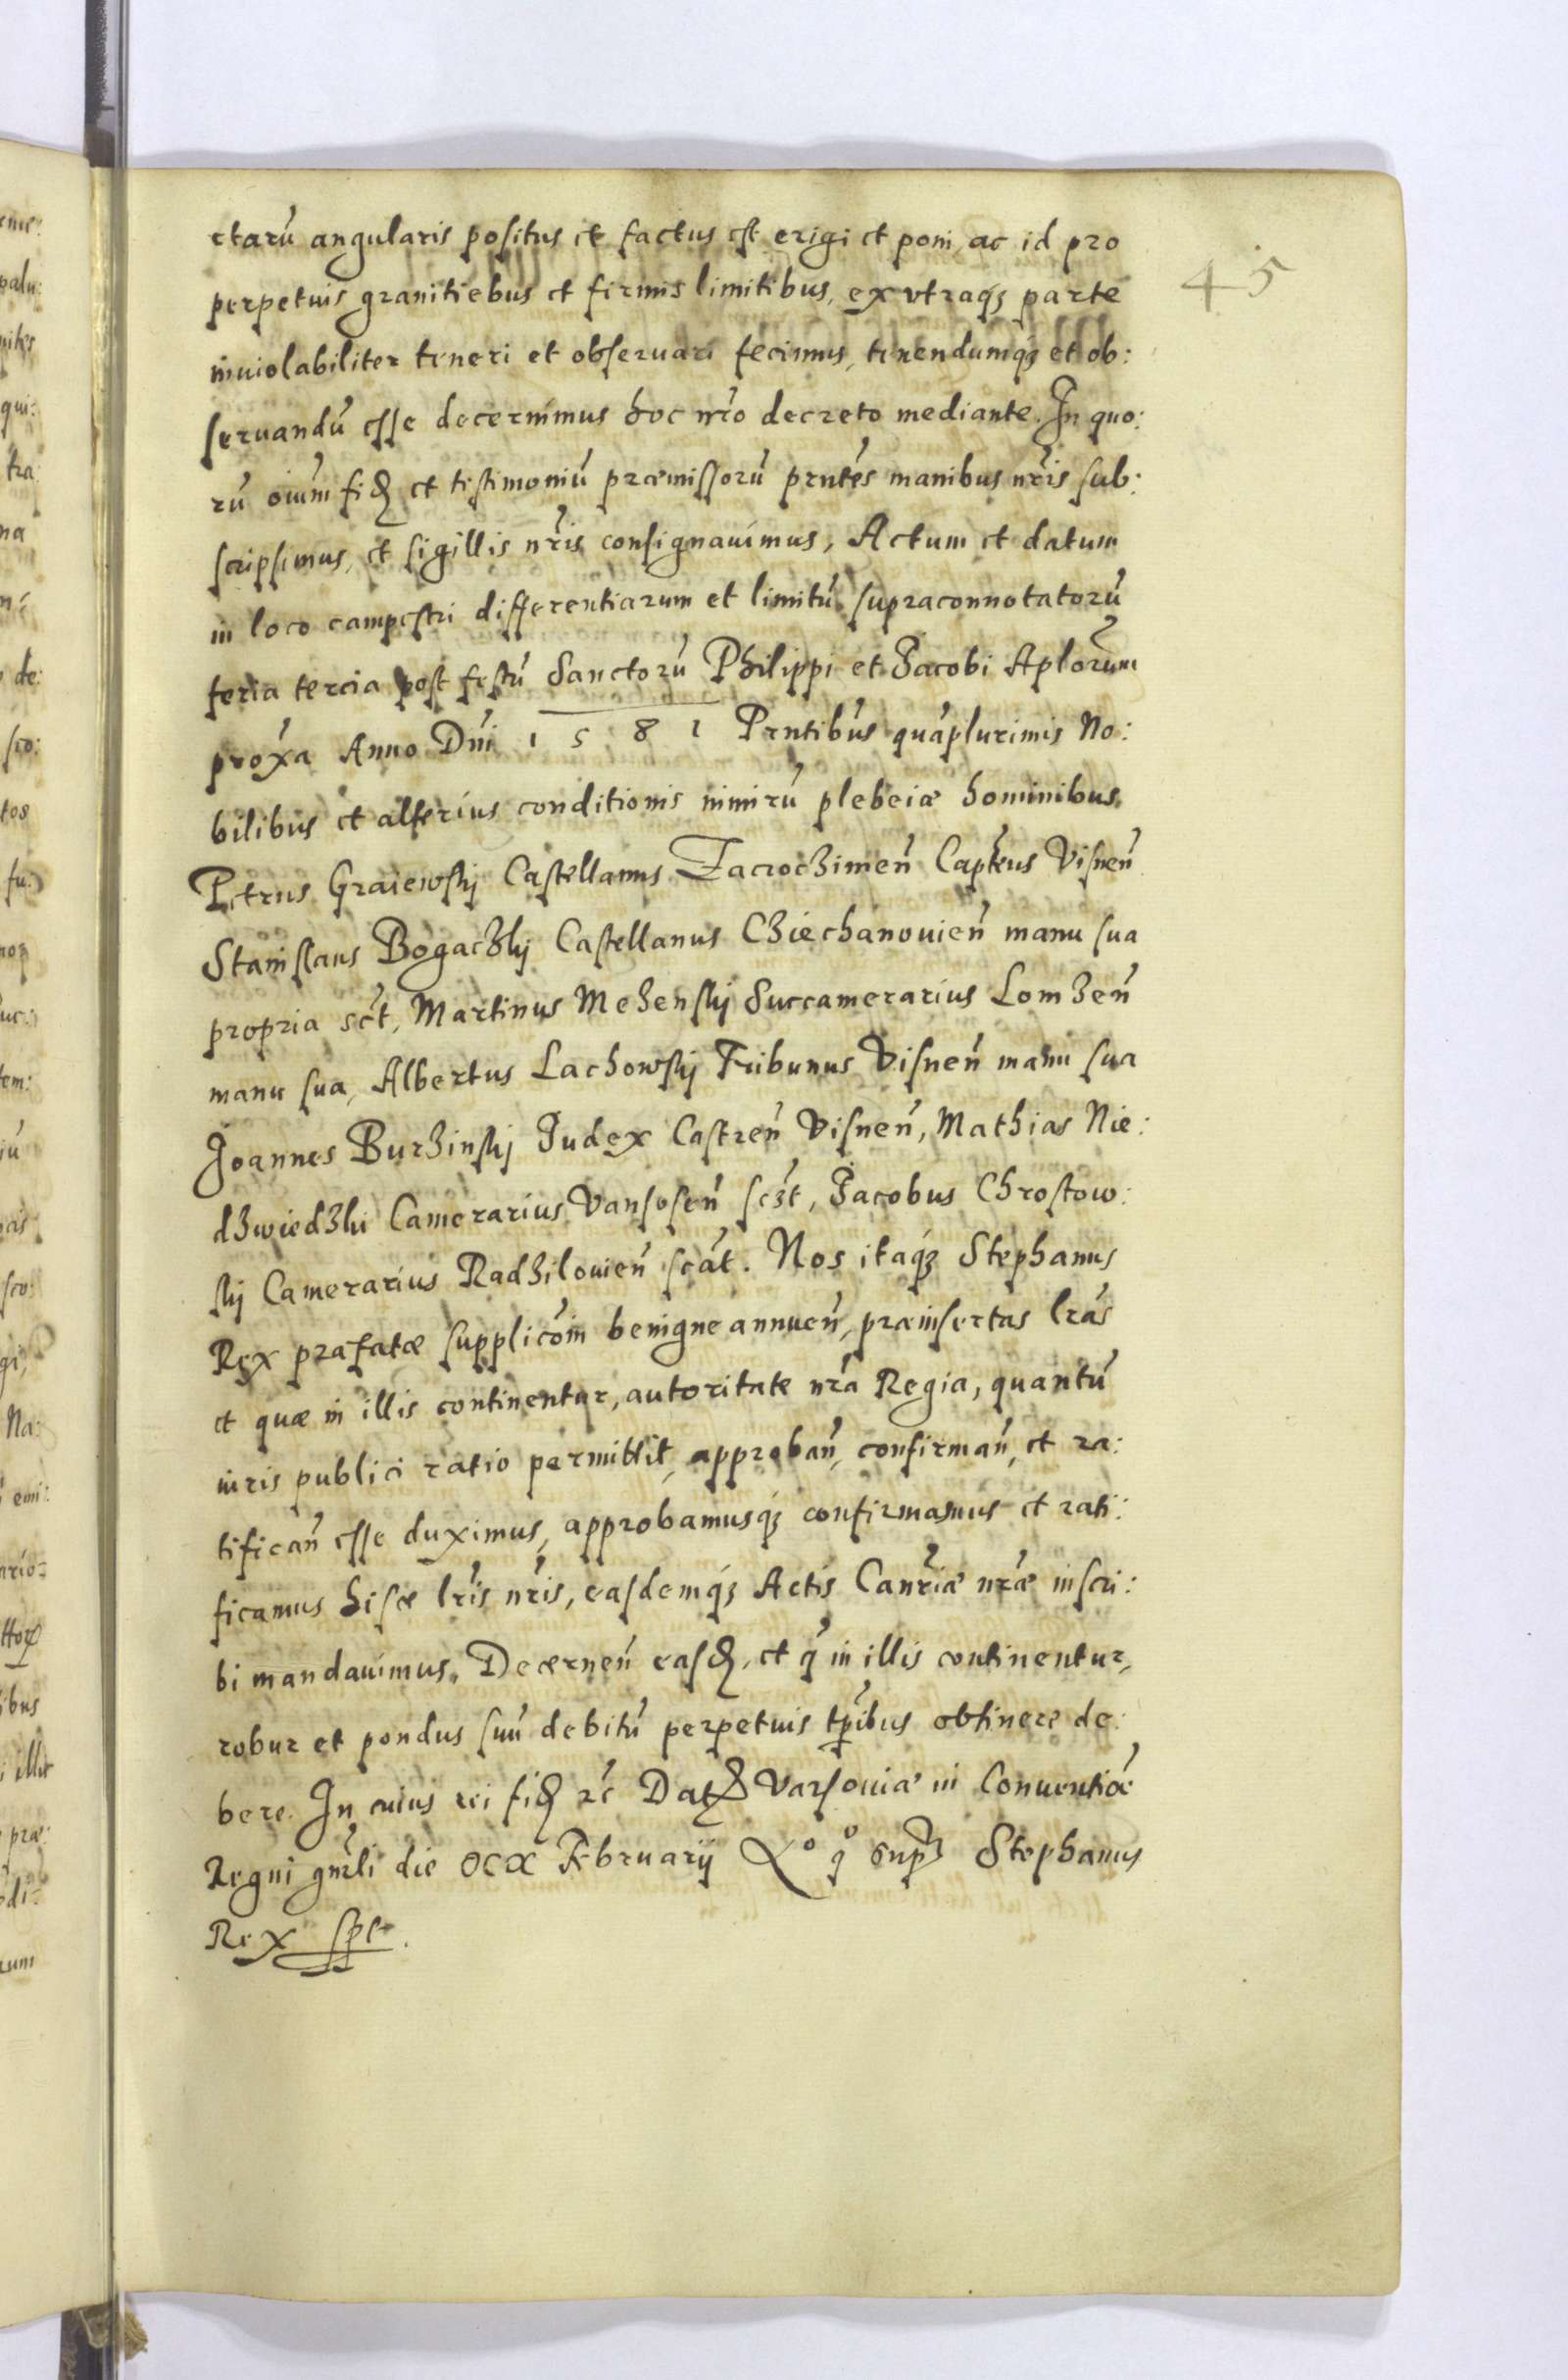 ctarū angularis positus et factus est erigi et poni, ac id pro
45
perpetuis granitiebus et firmis limitibus, ex vtraqȝ parte
inuiolabiliter teneri et obseruari fecimus, tenendumqȝ et ob:
seruandū esse decernimus hoc nr̃o decreto mediante. In quo:
rū oium̃ fidꝫ et testimoniū præmissorū prntẽs manibus nr̃is sub:
scripsimus, et sigillis nr̃is consignauimus, Actum et datum
in loco campestri differentiarum et limitū supraconnotatorū
feria tercia post festū Sanctorū Philippi et Jacobi Aplorũm
prox̃a Anno Dn̄i 1581 Prntibũs quãplurimis No:
bilibus et alterius conditionis nimirū plebeiæ hominibus,
Petrus Graiewskij Castellanus Zacrocziменñ Captẽus Visneñ
Stanislaus Bogaczkij Castellanus Cziechanouieñ manu sua
propria sc̃t, Martinus Mezenskij Succamerarius Lomzeñ
manu sua, Albertus Lachowskij Tribunus Visneñ manu sua
Joannes Burzinskij Judex Castreñ Visneñ, Mathias Nie:
dzwiedzki Camerarius Vansoseñ sczt̃, Jacobus Chrostow:
skij Camerarius Radzilouieñ scãt. Nos itaqȝ Stephanus
Rex præfatæ supplicõm benigne annueñ, præinsertas lrãs
et quæ in illis continentur, autoritate nr̃a Regia, quantū
iuris publici ratio permittit, approbañ, confirmañ, et ra:
tificañ esse duximus, approbamusqȝ confirmamus et rati:
ficamus hisce lr̃is nr̃is, easdemqȝ Actis Canr̃iæ nr̃æ inscri:
bi mandauimus, Decerneñ easdꝫ, et q̃ in illis continentur,
robur et pondus suū debitū perpetuis tp̃ribus obtinere de:
bere. In cuius rei fidꝫ rc̃ Datꝫ Varsouiæ in Conuentiõe
Regni gnr̃li die Februarij Stephanus
Rex sps̃t.